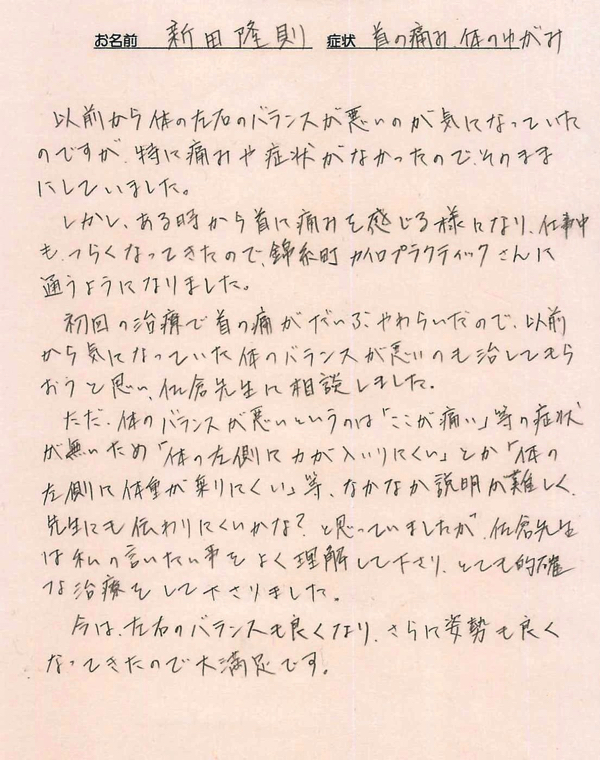 お名前 新田隆則 症状 首の痛み、体のゆがみ
以前から体の左右のバランスが悪いのが気になっていた
のですが、特に痛みや症状がなかったので、そのまま
にしていました。
しかし、ある時から首に痛みを感じる様になり、仕事中
も、つらくなってきたので、錦糸町カイロプラクティックさんに
通うようになりました。
初回の治療で首の痛がだいぶやわらいだので、以前
から気になっていた体のバランスが悪いのも治してもら
おうと思い、佐倉先生に相談しました。
ただ、体のバランスが悪いというのは「ここが痛い」等の症状
が無いため「体の左側に力が入いりにくい」とか「体の
左側に体重が乗りにくい」等、なかなか説明が難しく、
先生にも伝わりにくいかな?と思っていましたが、佐倉先生
は私の言いたい事をよく理解して下さり、とても的確
な治療をして下さりました。
今は、左右のバランスも良くなり、さらに姿勢も良く
なってきたので大満足です。